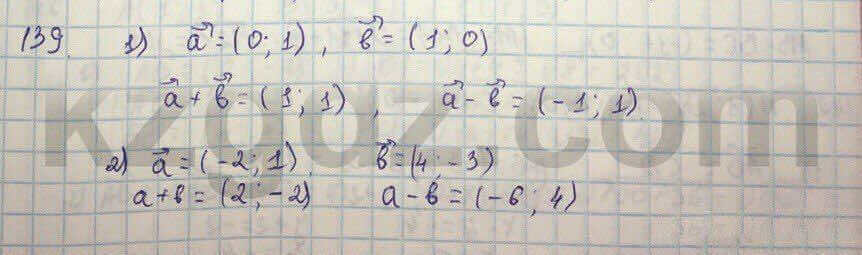 139. 1) a⃗ = (0; 1), в⃗ = (1; 0)
a⃗ + в⃗ = (1; 1), a⃗ - в⃗ = (-1; 1).
kzgdz.com
2) a⃗ = (-2; 1), в⃗ = (4; -3)
a+в = (2; -2) a - в = (-6; 4)